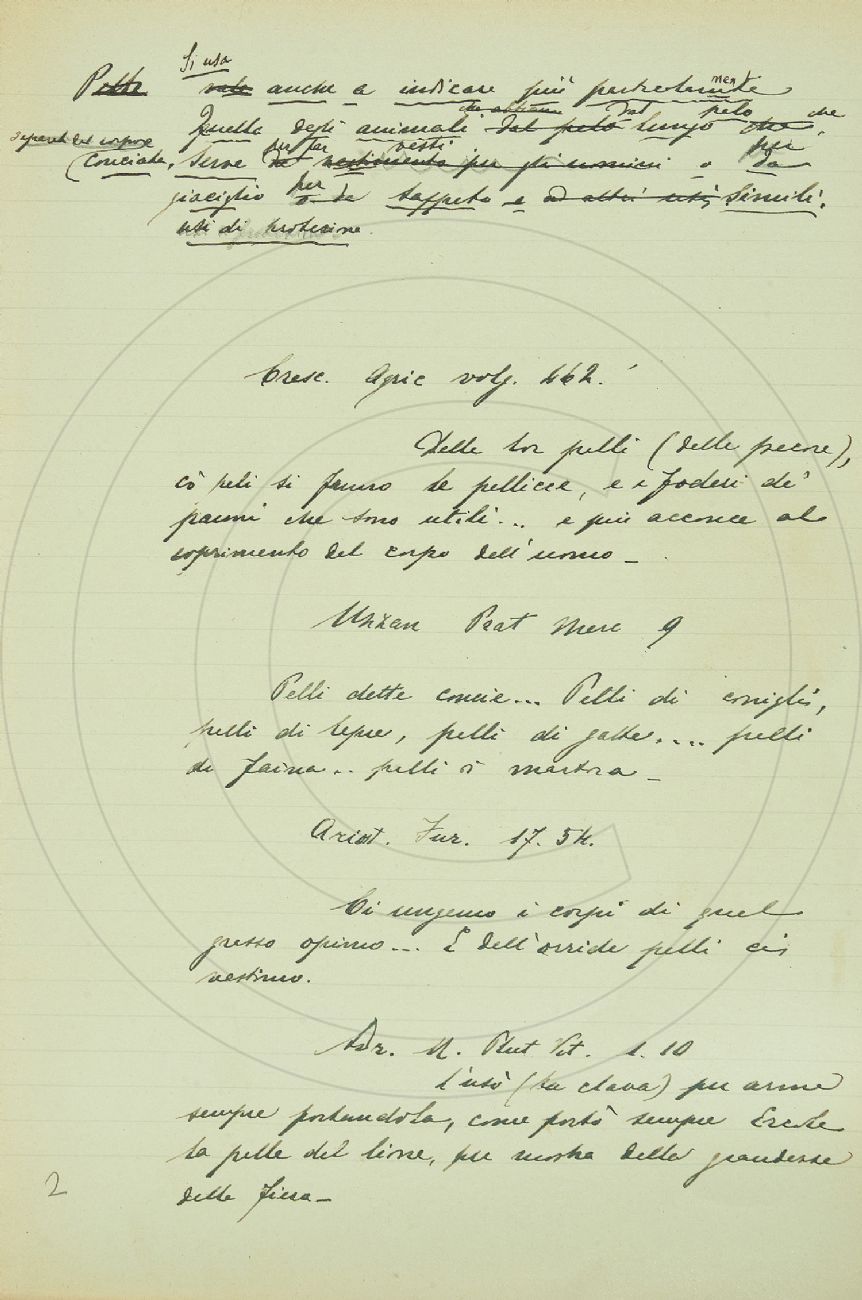 Si usa
Pelle vale anche a indicare più particolarmente
Quella degli animali che abbiano dal pelo lungo che,
separata dal corpo
(conciata, serve per far vesti vestimento per gli uomini o per da
giaciglio o per da tappeto e ad altri usi, simili.
usi di protezione.
Cresc. Agric volg. 462.
Delle lor pelli (delle pecore),
cò peli si fanno le pellicce, e i foderi de'
panni che sono utili... e più acconce al
coprimento del corpo dell'uomo _
Uzzan Prat Merc 9
Pelli dette concie... Pelli di conigli,
pelli di lepre, pelli di gatte.... pelli
di faina.. pelli di martora _
Ariost. Fur. 17. 54.
Ci ungemo i corpi di quel
grasso opimo... E dell'orride pelli ci
vestimo.
Adr. M. Plut Vit. 1. 10
l'usò (la clava) per arme
sempre portandola, come portò sempre Ercole
la pelle del lione, per mostra della grandezza
della fiera _
2